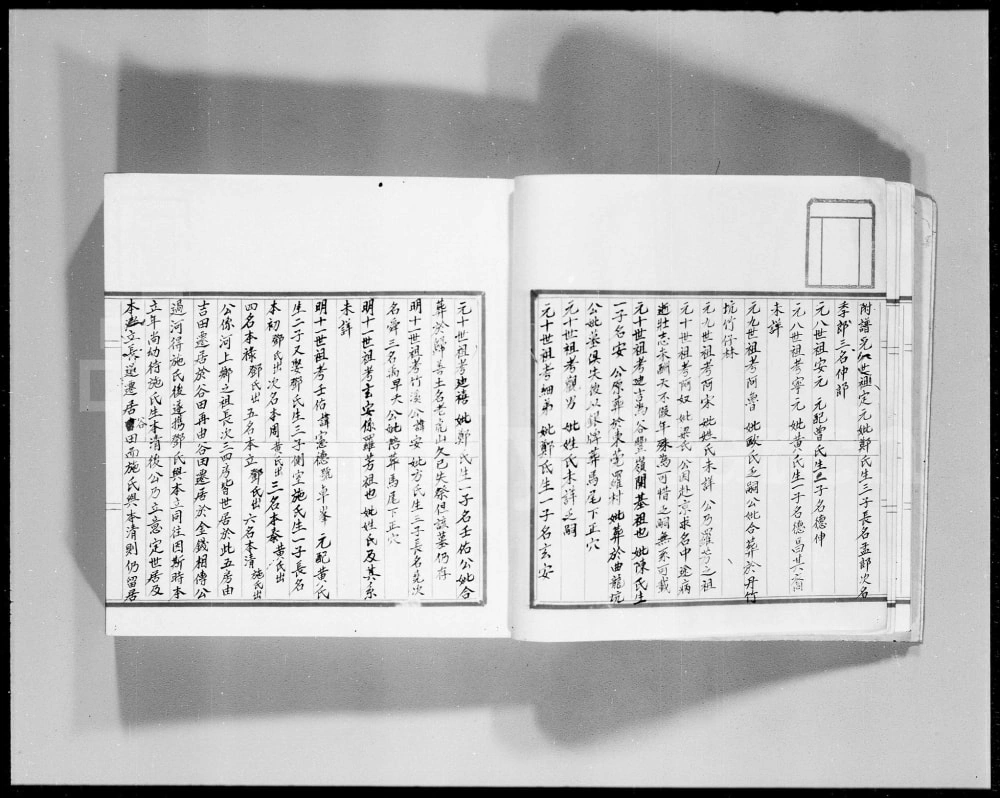 附譜元仁世祖定元妣鄭氏生三子長名孟郎次名
季郎三名仲郎
元八世祖安元 元配曾氏生一子名德伸
元八世祖考寧元妣黃氏生一子名德昌其裔
未詳
元九世祖考阿曾 妣歐氏乏嗣公妣合葬於丹竹
坑竹仔林
元九世祖考阿宋妣姓氏未詳 公乃羅芳之祖
元十世祖考阿奴妣梁氏公因赴京求名中途病
逝壯志未酬天不假年殊為可惜乏嗣無系可載
元十世祖考迪吉為谷豐嶺開基祖也妣陳氏生
一子名安 公原葬於東莞羅村 妣葬於曲龍坑
公妣墓俱失後以銀牌葬馬尾下正穴
元十世祖考觀男 妣姓氏未詳乏嗣
元十世祖考細弟 妣鄭氏生一子名玄安
元十世祖考迪禧 妣鄭氏生一子名壬佑公妣合
葬於歸善土名老虎山久已失祭但該墓仍存
明十一世祖考竹溪公諱安妣方氏生三子長名先次
名舜三名禹早夭公妣陪葬馬尾下正穴
明十一世祖考玄安係羅芳祖也妣姓氏及其系
未詳
明十一世祖考壬佑諱憲德號卓峯 元配黃氏
生二子又娶鄧氏生三子側室施氏生一子長名
本初鄧氏出次名本周黃氏出三名本泰黃氏出
四名本祿鄧氏出五名本立鄧氏出六名本清施氏出
公係河上鄉之祖長次三四房皆世居於此五房由
吉田遷居於谷田再由谷田遷居於金錢相傳公
過河得施氏後遂携鄧氏與本立同往因斯時本
立年尚幼待施氏生本清後公乃立意定世居及
本立長遂遷居谷田而施氏與本清則仍留居